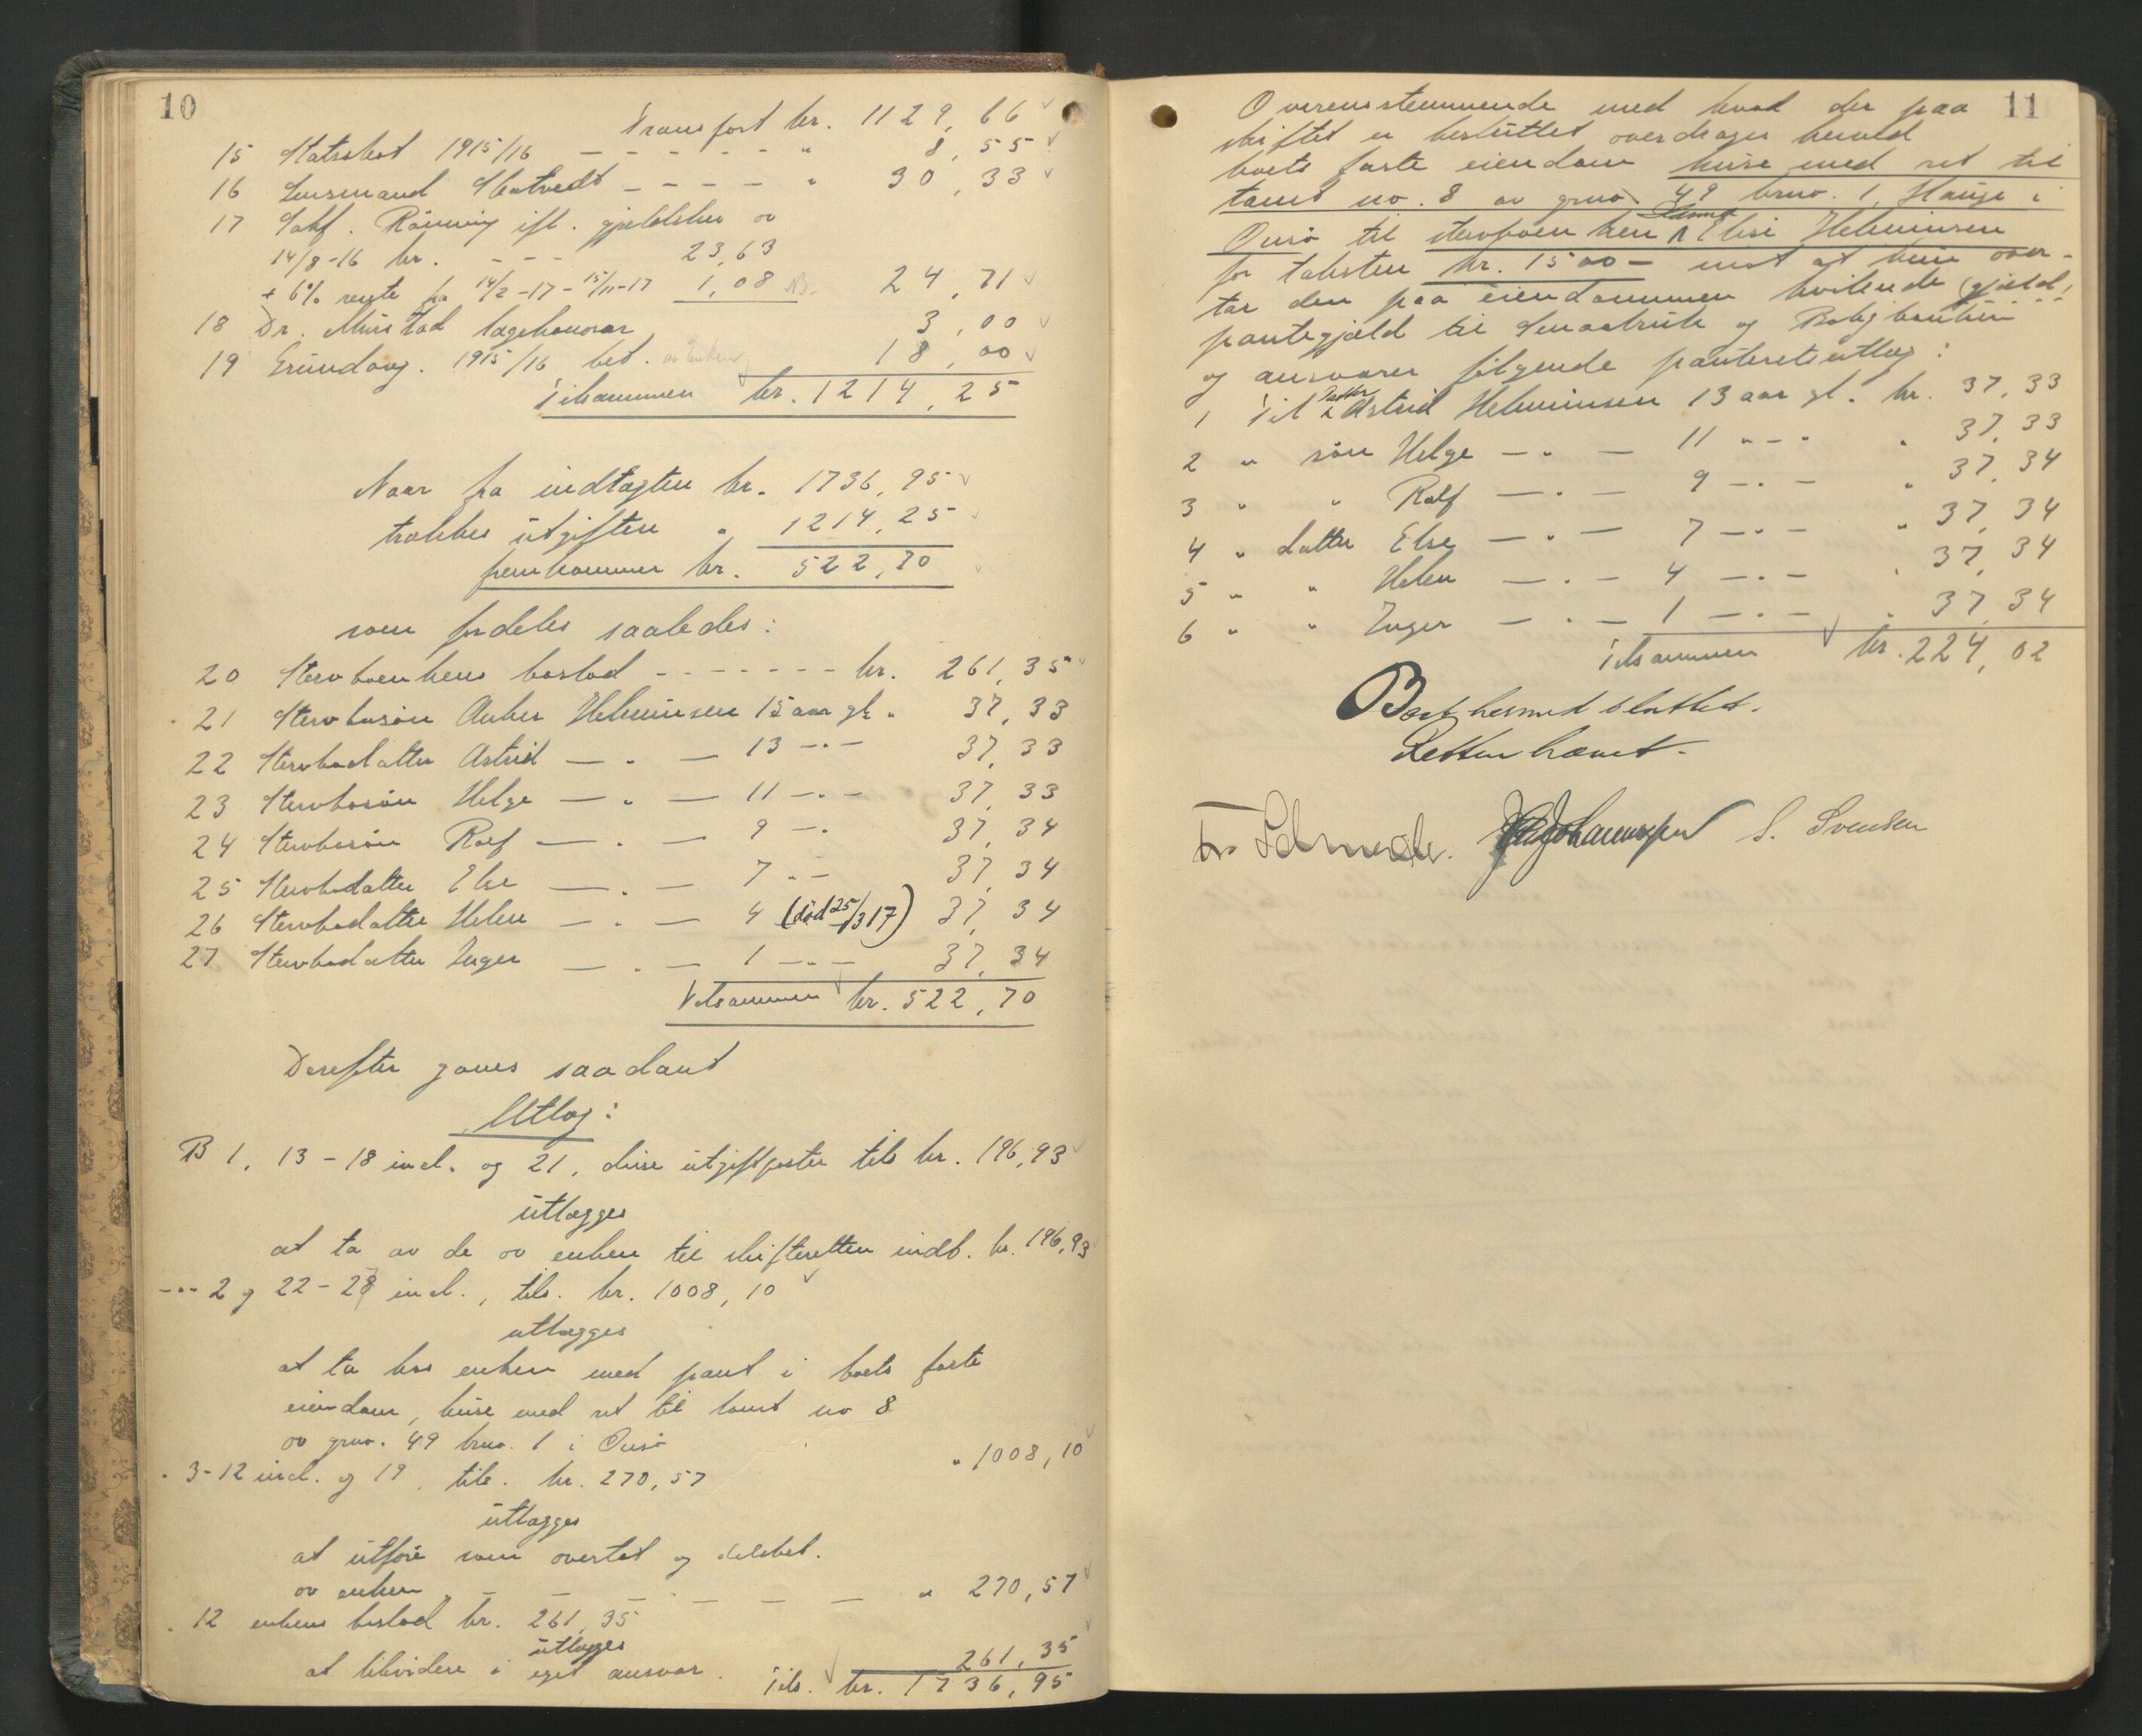 10
Transport kr. 1129,66
15 Statsskat 1915/16 — — — — — " 8,55
16 Lensmand Skatvedt — — — — " 30,33
17 Sakf. Rönning ifl. gjeldsbr av
14/8-16 kr. - - - 23,63
+ 6% rente fra 14/2-17 - 15/11-17 1,08 24,71
18 Dr. Mustad lægehonorar 3,00
19 Grundavg. 1915/16 bet. av enken 18,00
Tilsammen kr. 1214,25
Naar fra indtægten kr. 1736,95
trækkes utgiften " 1214,25
fremkommer kr. 522,70
som fordeles saaledes:
20 Stervboenkens boslod - - - - - - - kr. 261,35
21 Stervbosön Anker Helmunsen 15 aar gl. " 37,33
22 Stervbodatter Astrid — " — 13 — " — 37,33
23 Stervbosön Helge — " — 11 — " — 37,33
24 Stervbosön Rolf — " — 9 — " 37,34
25 Stervbodatter Else — " — 7 " — 37,34
26 Stervbodatter Helen — " — 4 (död 25/3 17) 37,34
27 Stervbodatter Inger — " — 1 — " — 37,34
Tilsammen kr. 522,70
Derefter gjøres saadant
Utlæg:
B 1, 13-18 incl. og 21, disse utgiftsposter tils kr. 196,93
utlægges
at ta av de av enken til skifteretten indb. kr. 196,93
-"- 2 og 22-28 incl., tils. kr. 1008,10
utlægges
at ta hos enken med pant i boets faste
eiendom, huse med ret til tomt no 8
av grno. 49 brno. 1 i Onsö " 1008,10
" 3-12 incl. og 19, tils. kr. 270,57
utlægges
at utföre som overtat og delsbet.
av enken — — — — — — " 270,57
" 12 enkens boslod kr. 261,35
utlægges
at likvidere i eget ansvar. 261,35
Tils. kr. 1736,95
11
Overensstemmende med hvad der paa
skiftet er besluttet overdrages herved
boets faste eiendom huse med ret til
tomt no. 8 av grno. 49 brno. 1, Hauge i
Onsö til stervboenken Elise Helmunsen
for taksten kr. 1500- mot at hun over-
tar den paa eiendommen hvilende (gjæld)
pantegjæld til Smaabruk og Boligbanken
og ansvarer følgende panteretsutlæg:
1 Til datter Astrid Helmunsen 13 aar gl. kr. 37,33
2 " sön Helge — " — 11 " — " " 37,33
3 " " Rolf — " — 9 — " — " 37,34
4 " datter Else — " — 7 — " — " 37,34
5 " " Helen — " — 4 — " — " 37,34
6 " " Inger — " — 1 — " — " 37,34
Tilsammen kr. 224,02
Boet hermed sluttet.
Retten hævet.
S. Svensen